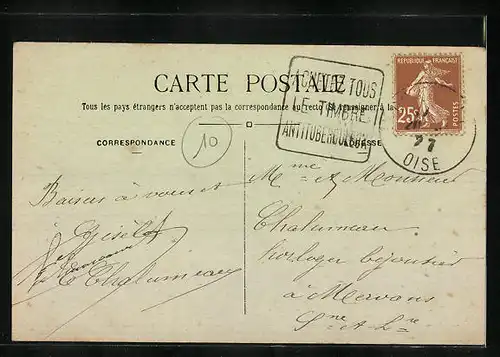 CARTE POSTALE
Tous les pays étrangers n'acceptent pas la correspondance au recto (se renseigner à la
CORRESPONDANCE
ADRESSE
ACHETEZ TOUS
LE TIMBRE
ANTITUBERCULEUX
REPUBLIQUE FRANÇAISE
25c
POSTES
27
OISE
10
Baisers à vous et
Gisèle
E Chalumeau
Mme et Monsieur
Chalumeau
horloger bijoutier
à Mervans
Sne-et-Lre